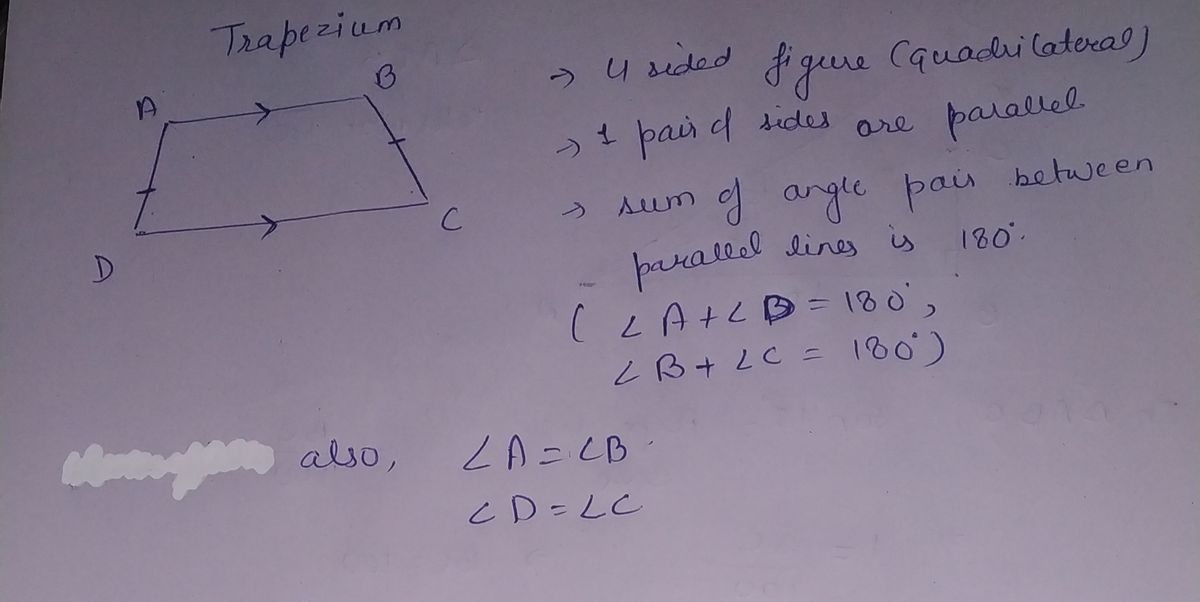 Trapezium
A
B
C
D
→ 4 sided figure (quadrilateral)
→ 1 pair of sides are parallel
→ sum of angle pair between
parallel lines is 180°.
( ∠A+∠D = 180°,
∠B+ ∠C = 180°)
also, ∠A=∠B
∠D=∠C